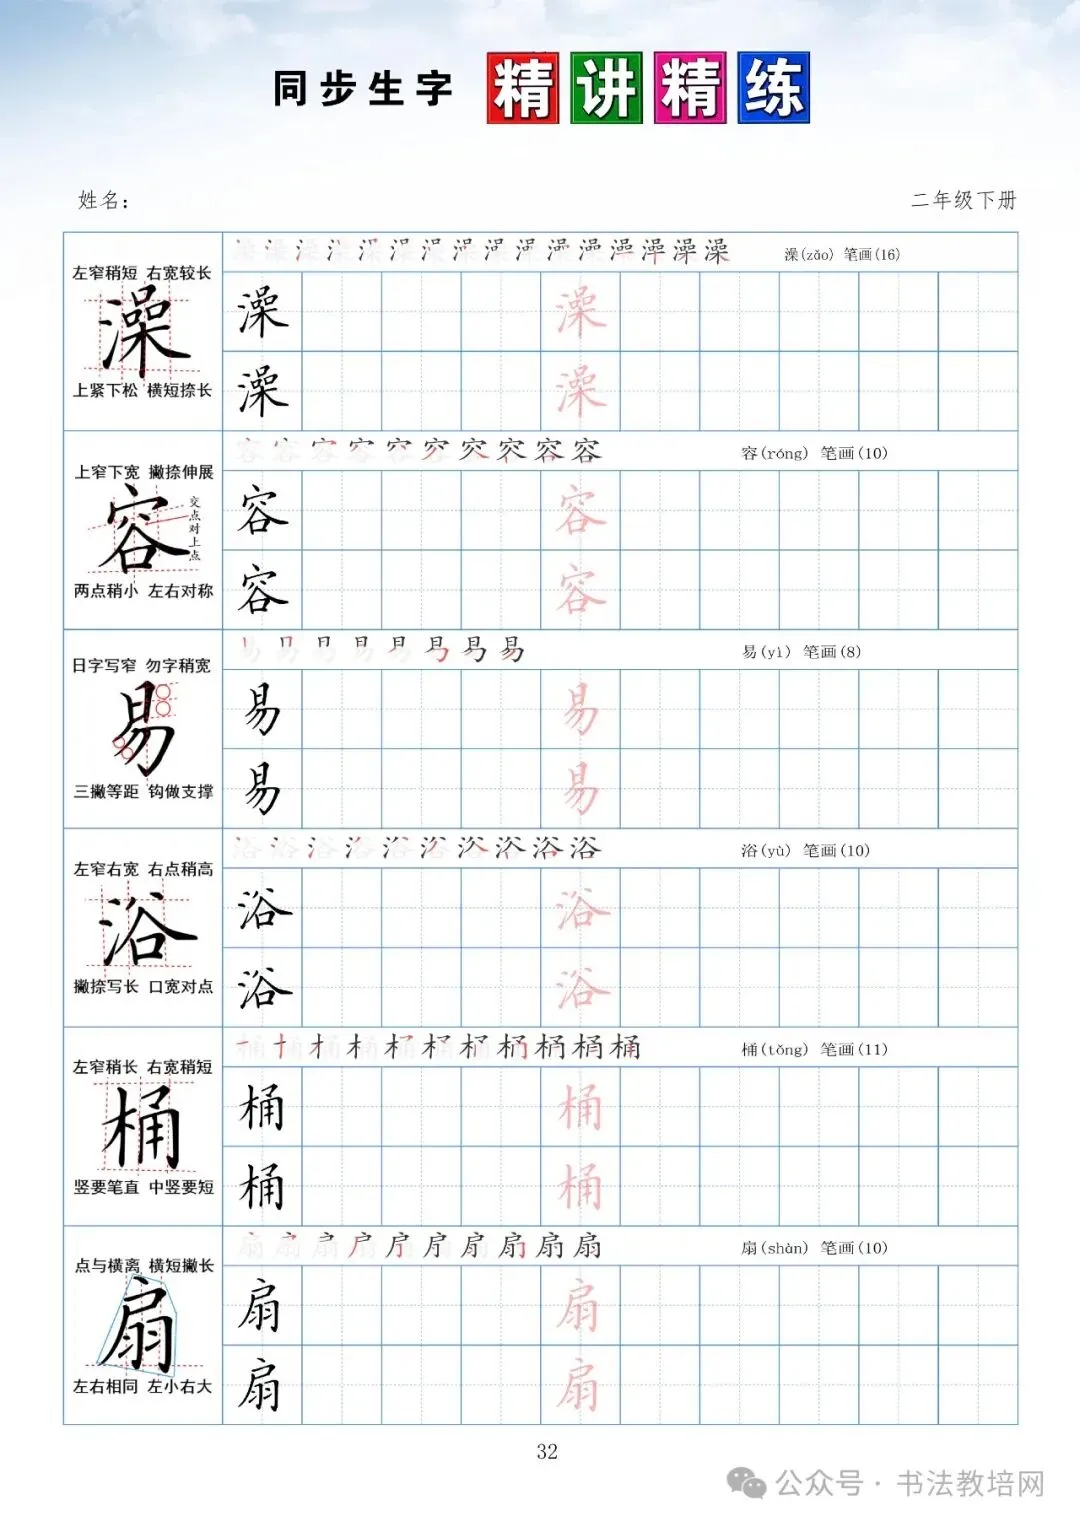 同步生字 精讲精练
姓名: 二年级下册
左窄稍短 右宽较长
澡
上紧下松 横短捺长
澡(zǎo) 笔画(16)
澡 澡
澡 澡
上窄下宽 撇捺伸展
容
交点对上点
两点稍小 左右对称
容(róng) 笔画(10)
容 容
容 容
日字写窄 勿字稍宽
易
三撇等距 钩做支撑
易(yì) 笔画(8)
易 易
易 易
左窄右宽 右点稍高
浴
撇捺写长 口宽对点
浴(yù) 笔画(10)
浴 浴
浴 浴
左窄稍长 右宽稍短
桶
竖要笔直 中竖要短
桶(tǒng) 笔画(11)
桶 桶
桶 桶
点与横离 横短撇长
扇
左右相同 左小右大
扇(shàn) 笔画(10)
扇 扇
扇 扇
32
公众号·书法教培网